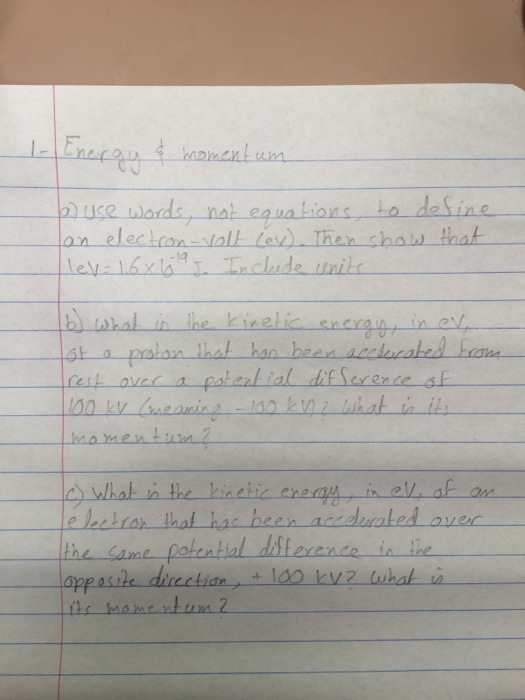 1- Energy & momentum
a) use words, not equations, to define
an electron-volt (ev). Then show that
1ev = 1.6x10^-19 J. Include units
b) what is the kinetic energy, in ev,
of a proton that has been acclerated from
rest over a potential difference of
100 kV (meaning -100 kV)? what is its
momentum?
c) What is the kinetic energy, in eV, of an
electron that has been accelerated over
the same potential difference in the
opposite direction, +100 kV? what is
its momentum?